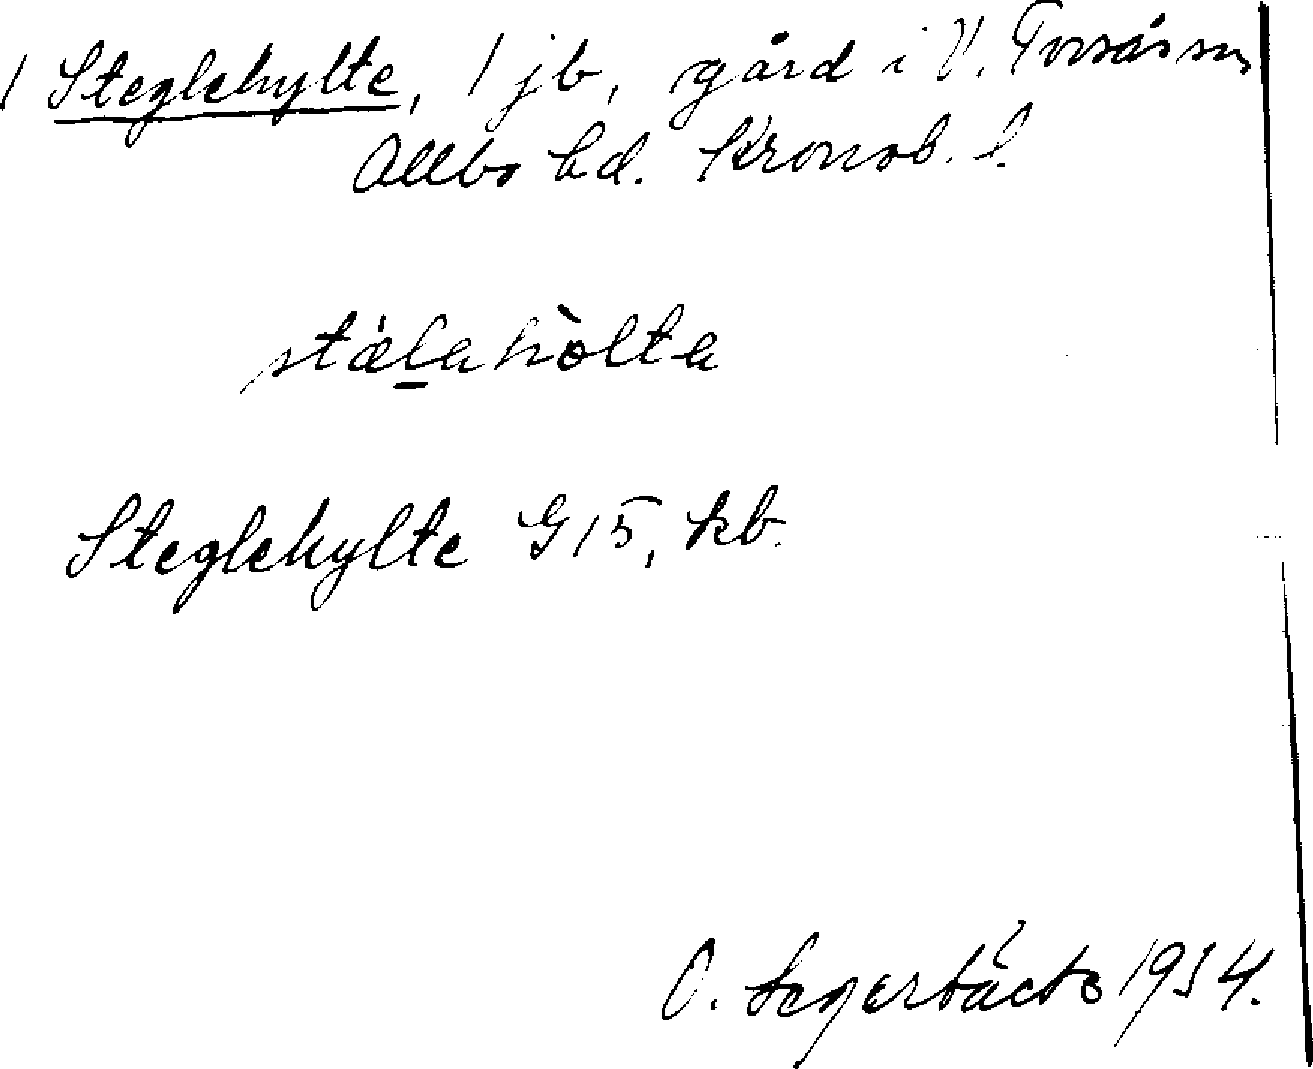 1 Steglehylte, 1 jb, gård i V. Torsås sn
Allbo hd. Kronob. l.
stæ̀lahòlta
Steglehylte G15, kb.
O. 1934.